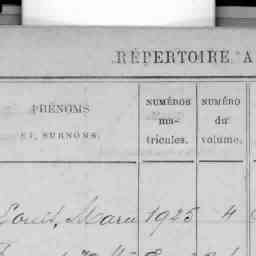 RÉPERTOIRE A
PRÉNOMS
ET SURNOMS.
NUMÉROS
ma-
tricules.
NUMÉRO
du
volume.
Louis, Marie 1925 4